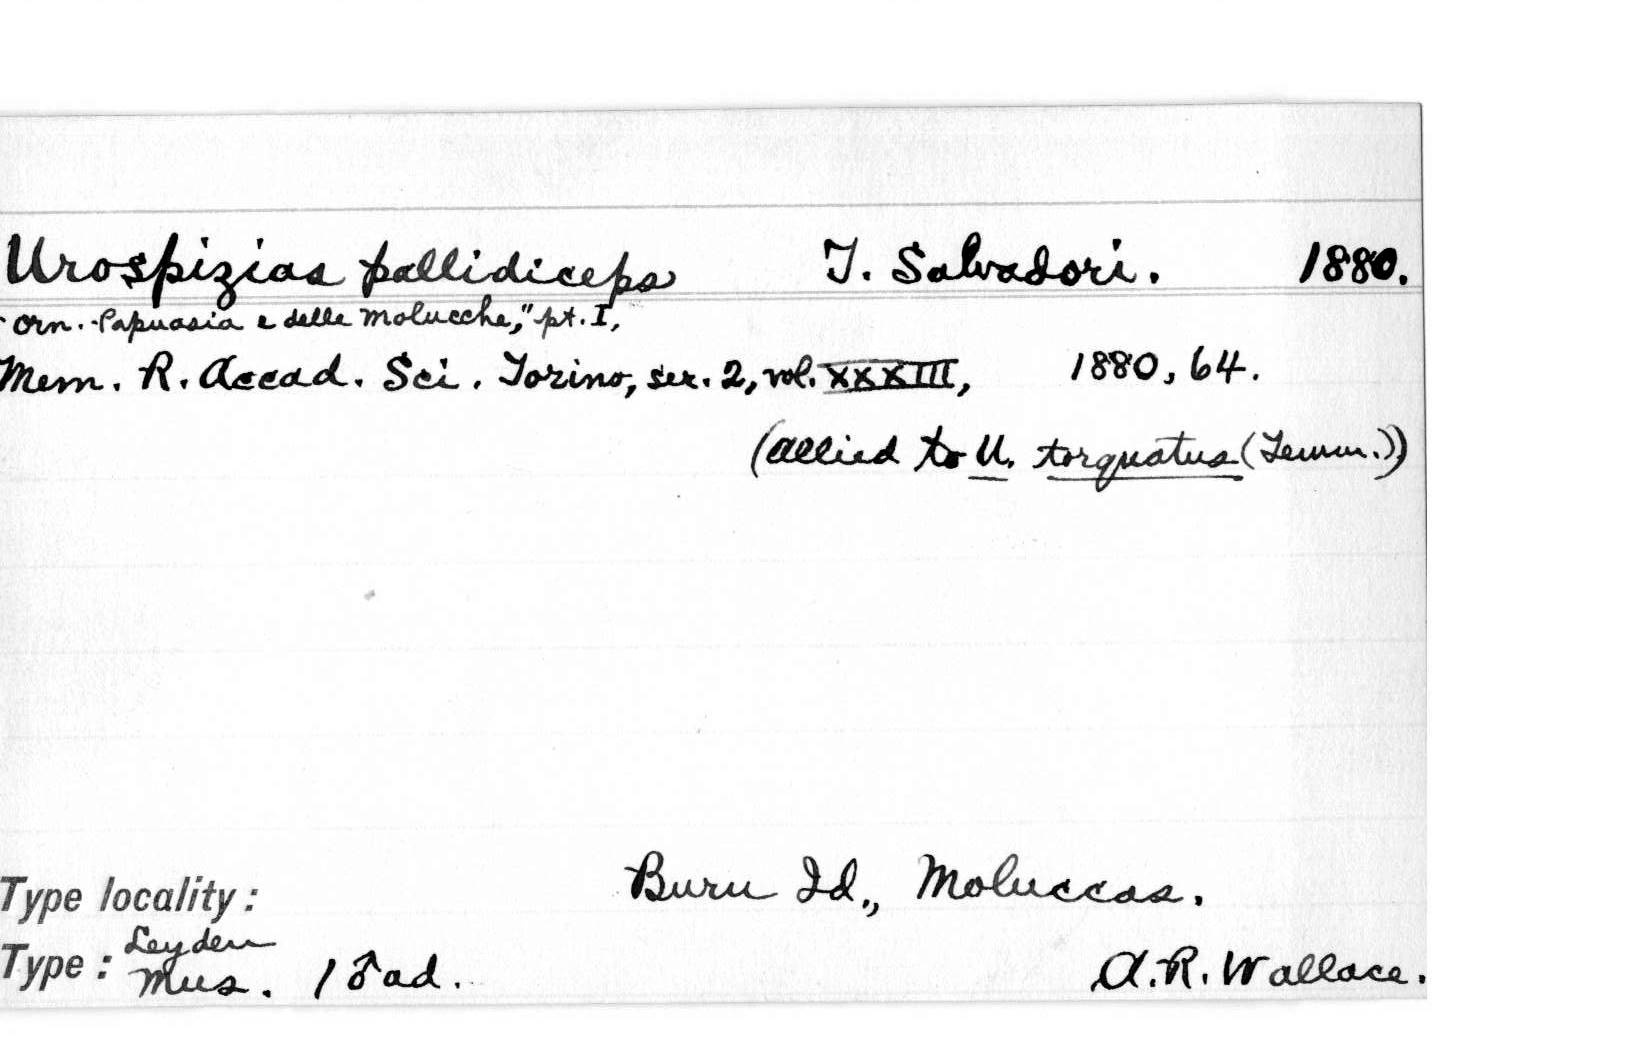 Urospizias pallidiceps T. Salvadori. 1880.
"Orn. Papuasia e delle Molucche," pt. I,
Mem. R. Accad. Sci. Torino, ser. 2, vol. XXXIII, 1880, 64.
(allied to U. torquatus (Temm.))
Type locality: Buru Id., Moluccas.
Type: Leyden Mus. 1 ♂ ad. A.R. Wallace.